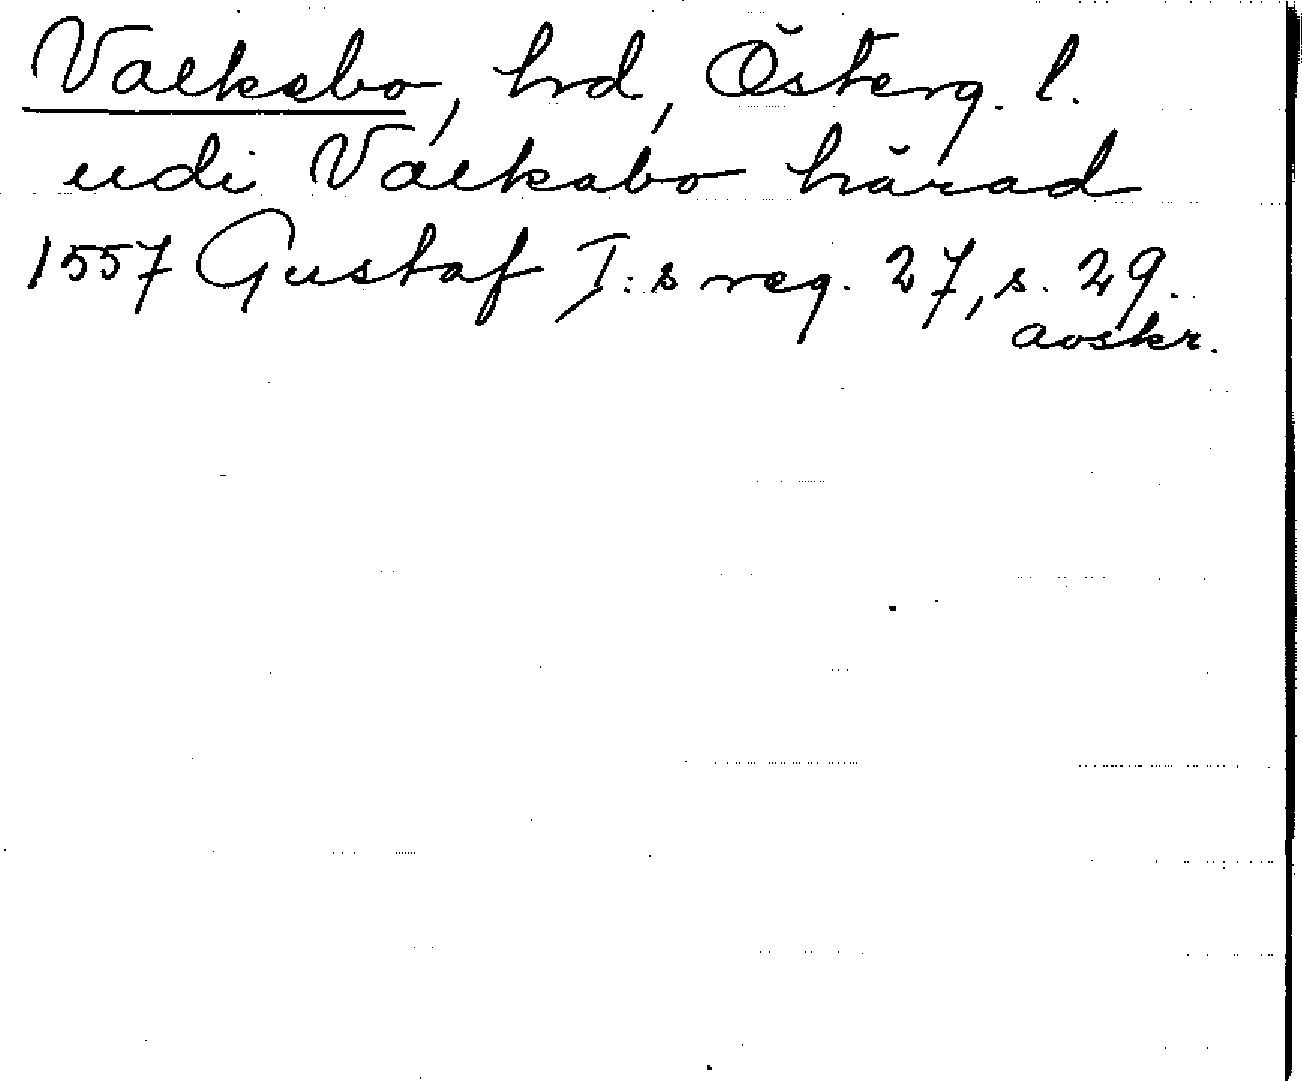 Valkebo, hrd, Österg. l.
udi Valkabo härad
1557 Gustaf I:s reg. 27, s. 29.
avskr.